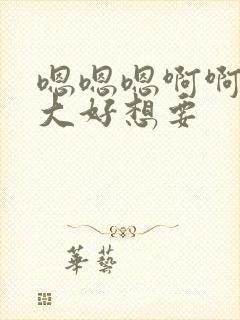 嗯嗯嗯啊啊
大好想要
華藝